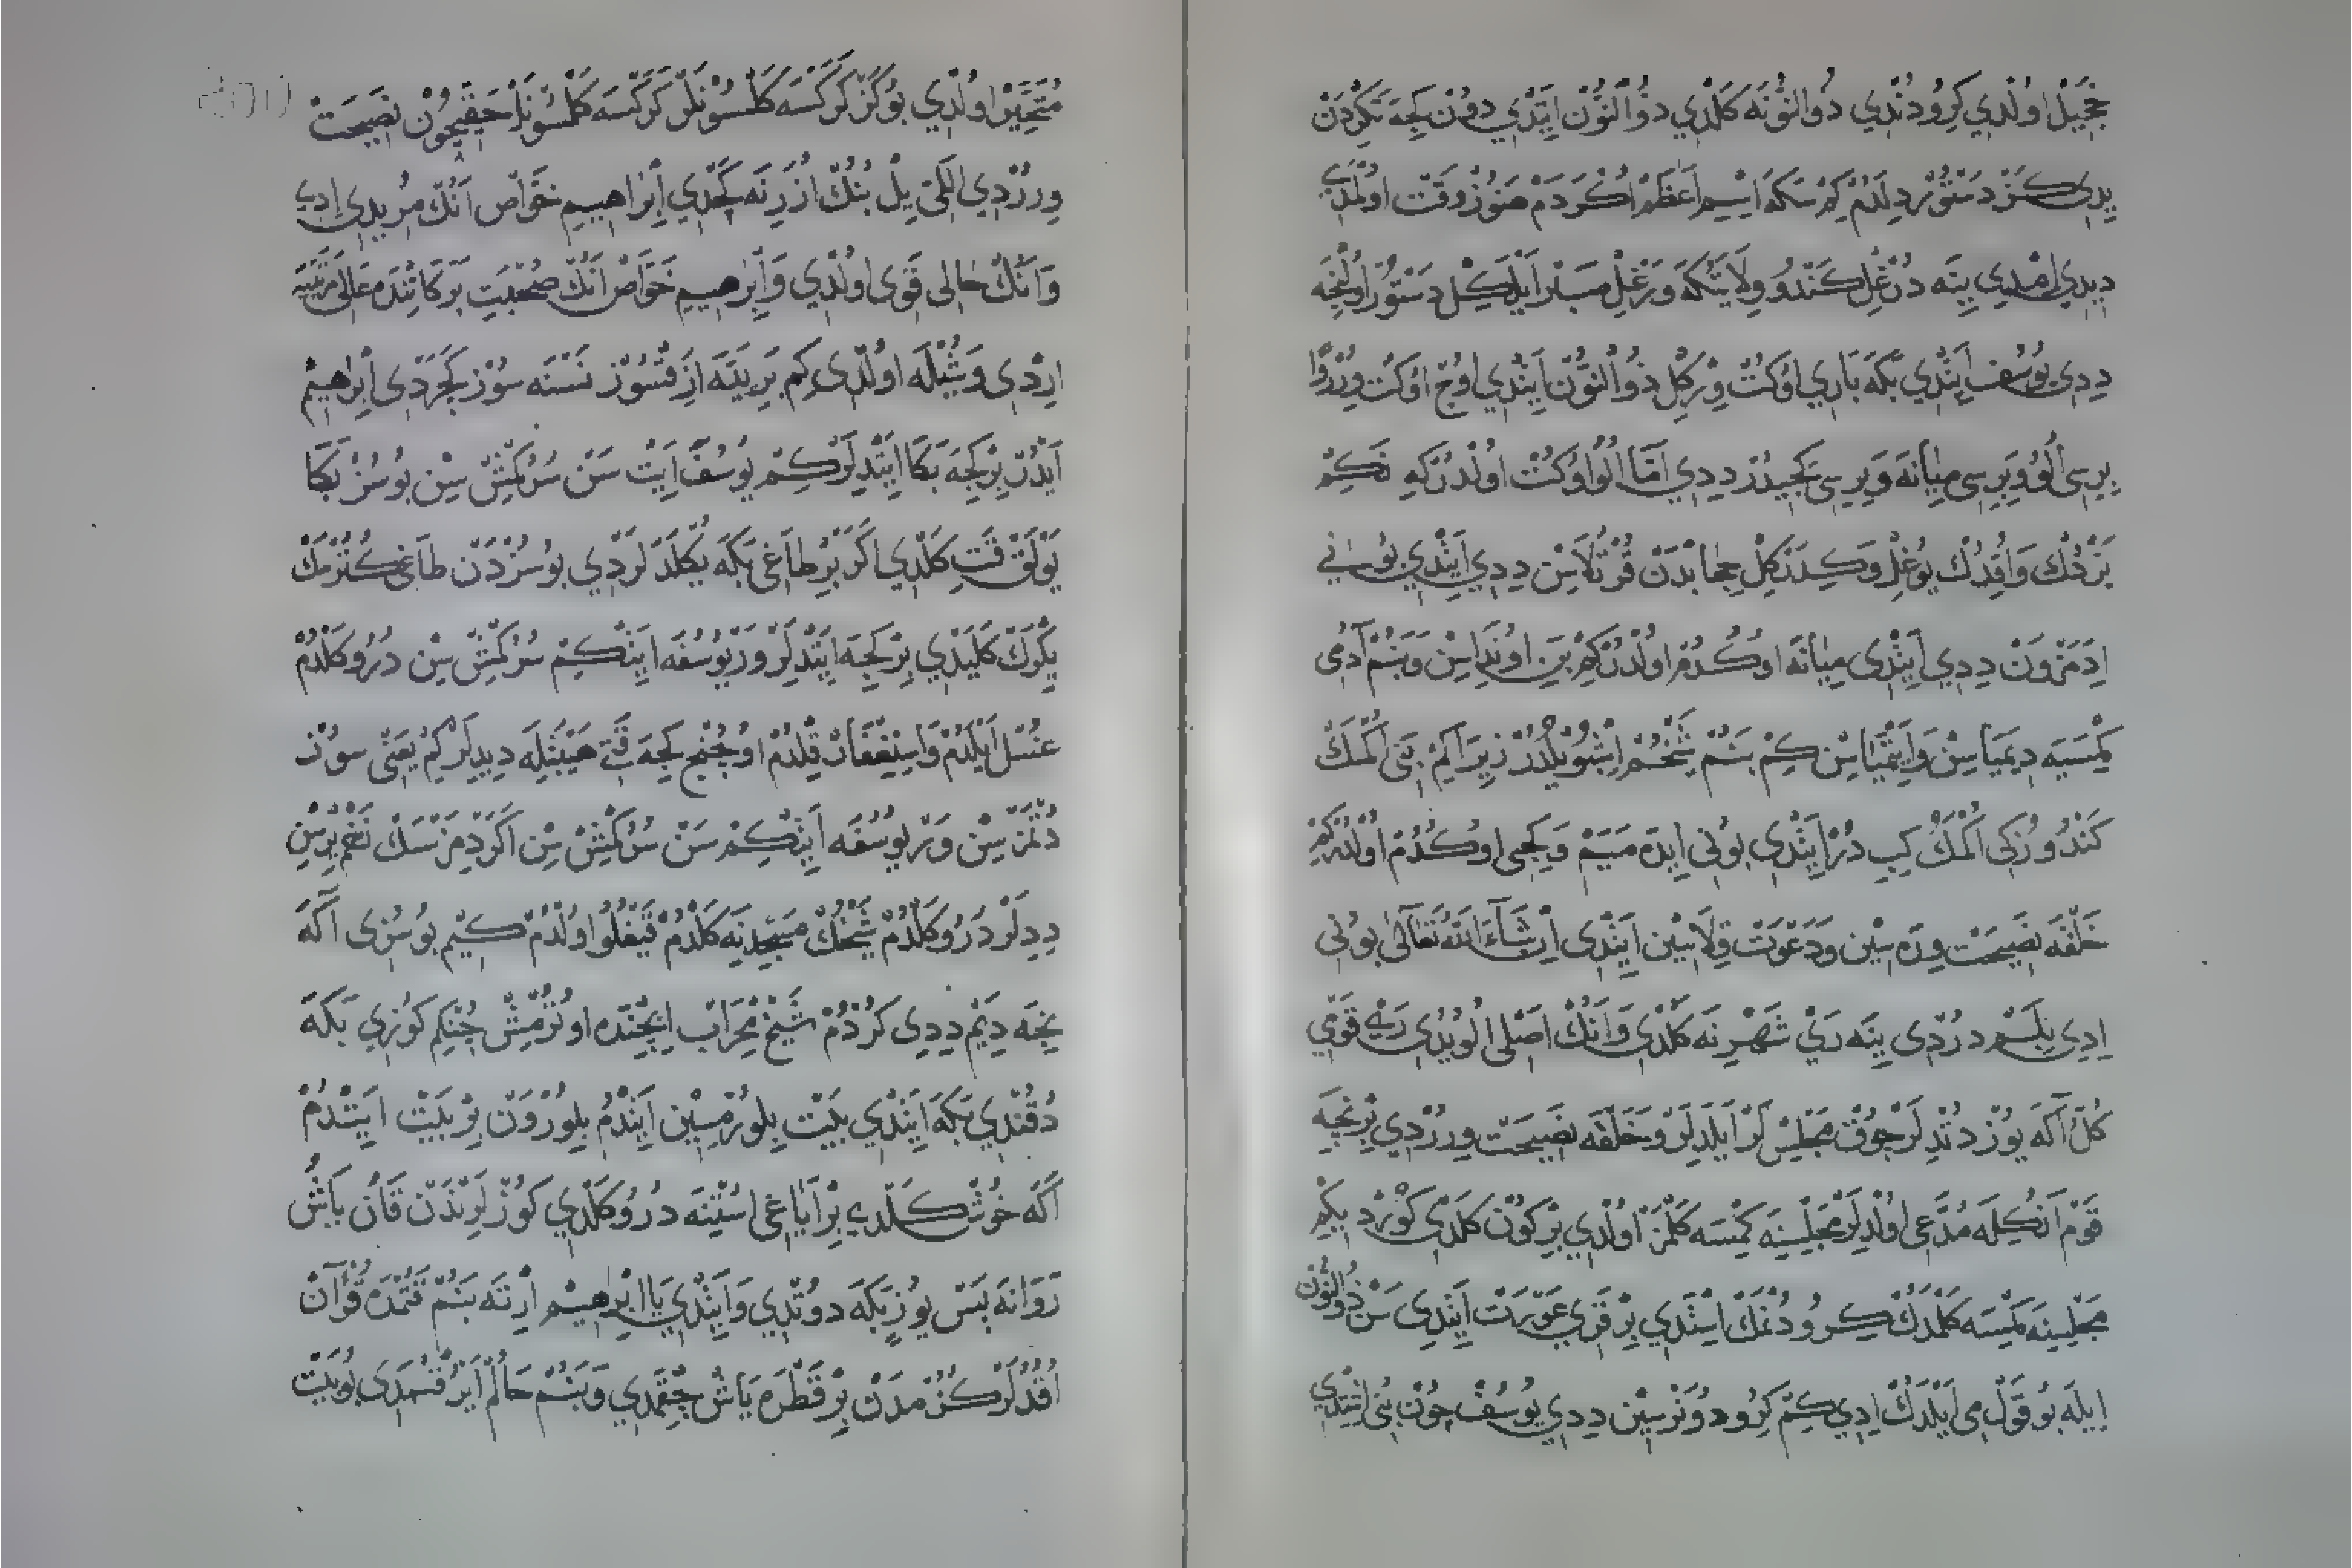 خجيل اولدي كرو دندي ذو النونه كلدي ذو النون ايتدي دون كجه تكريدن
يدي كز دستور دلدم كم سكا اسم اعظم اكردم هنوز وقت اولمدي
ديدي امدي ينه درغل كندو ولايتكه ورغل صبر ايلكل دستور اولنجه
ددي يوسف ايتدي بكه باري اوكت ويركل ذو النون ايتدي اوج اوكت ويرورم
بريسى الو و بريسى ميانه و بريسى كجيدر ددي اما الو اوكت اولدركه نكم
يزدك و اوقدك يوغل و كدركل حجابدن قرتلاسن ددي ايتدي بوني
ادمزون ددي ايتدى ميانه اوكدم اولدركم بني اوندasن و بنم آدمى
كمسيه ديمياسن و ايتمياسن كم بنم شيخم اشبودر زيرا كم بنى اكمك
كندوزكى اكمك كبدر ايتدى بونى ايده ميم و كجى اوكدم اولدركم
خلقه نصيحت وره سين و دعوت قلاسين ايتدى ان شاء الله تعالى بونى
ادى بلسم دردى ينه رى شهرنه كلدى و انك اصلى الويدى رى قومي
كل آكه يوز دتدلر جوق مجلسلر ايلدلر و خلقه نصيحت وررdي بر نجه
قوم انكله مدعى اولدلر مجلسينه كمسه كلمز اولدي بر كون كلدى كوردكم
مجلسينه كمسه كلمدك كرو دنمك استدي بر قري عورت ايتدى سن ذو النون
ايله بو قولمى ايلدك ادي كم كرو دونرسين ددي يوسف جون بنى اشتدي
متحير اولدي بو كز كر كسه كلسونلر كر كسه كلمسونلر حقيجون نصيحت
وررdي اللى يل بنك ازرنه كجدي ابراهيم خواص انك مريدي ادي
و انك حالى قوى اولدي و ابرهيم خواص انك صحبت بركاتنده عالى مرتبيه
اردى و شيله اولدى كم بر ينه ازقسوز نسنه سوز كجردى ابراهيم
ايدر بر كجه بكا ايتدلر كم يوسفه ايت سن سركشسن بو سز بكا
يولق قت كلدي اكر بر طاغى بكه يكلدلردي بو سزدن طاغى كترمك
يكرك كليدي بر كجه ايتدلر ور يوسفه ايتكم سركشسن درو كلدم
غسل ايلدم و استغفار قلدم اوجنجى كجه قتى هيبتله ديديلركم يعنى سوز
دتمزسن ور يوسفه ايتكم سن سركشسن اكر دمزسك زخم يرسن
ددلر درو كلدم شيخك مسجدنه كلدم قيغلو اولدم كيم بو سزى آكه
نجه ديم ددى كردم شيخ محراب ايجنده اوترمش جنكم كوزي بكه
دقندي بكه ايتدي بيت بلورميسين ايتدم بلورون بر بيت ايتدم
آكه خوش كلدي بر اياغى استينه درو كلدي كوزلرندن قان ياش
روانه بس يوز بكه دوتدي و ايتدي يا ابرهيم ارته بنم قتمده قرآن
اقدلر كزمدن بر قطره ياش جقمدي و بنم حالم ايرقسمدى بو بيت